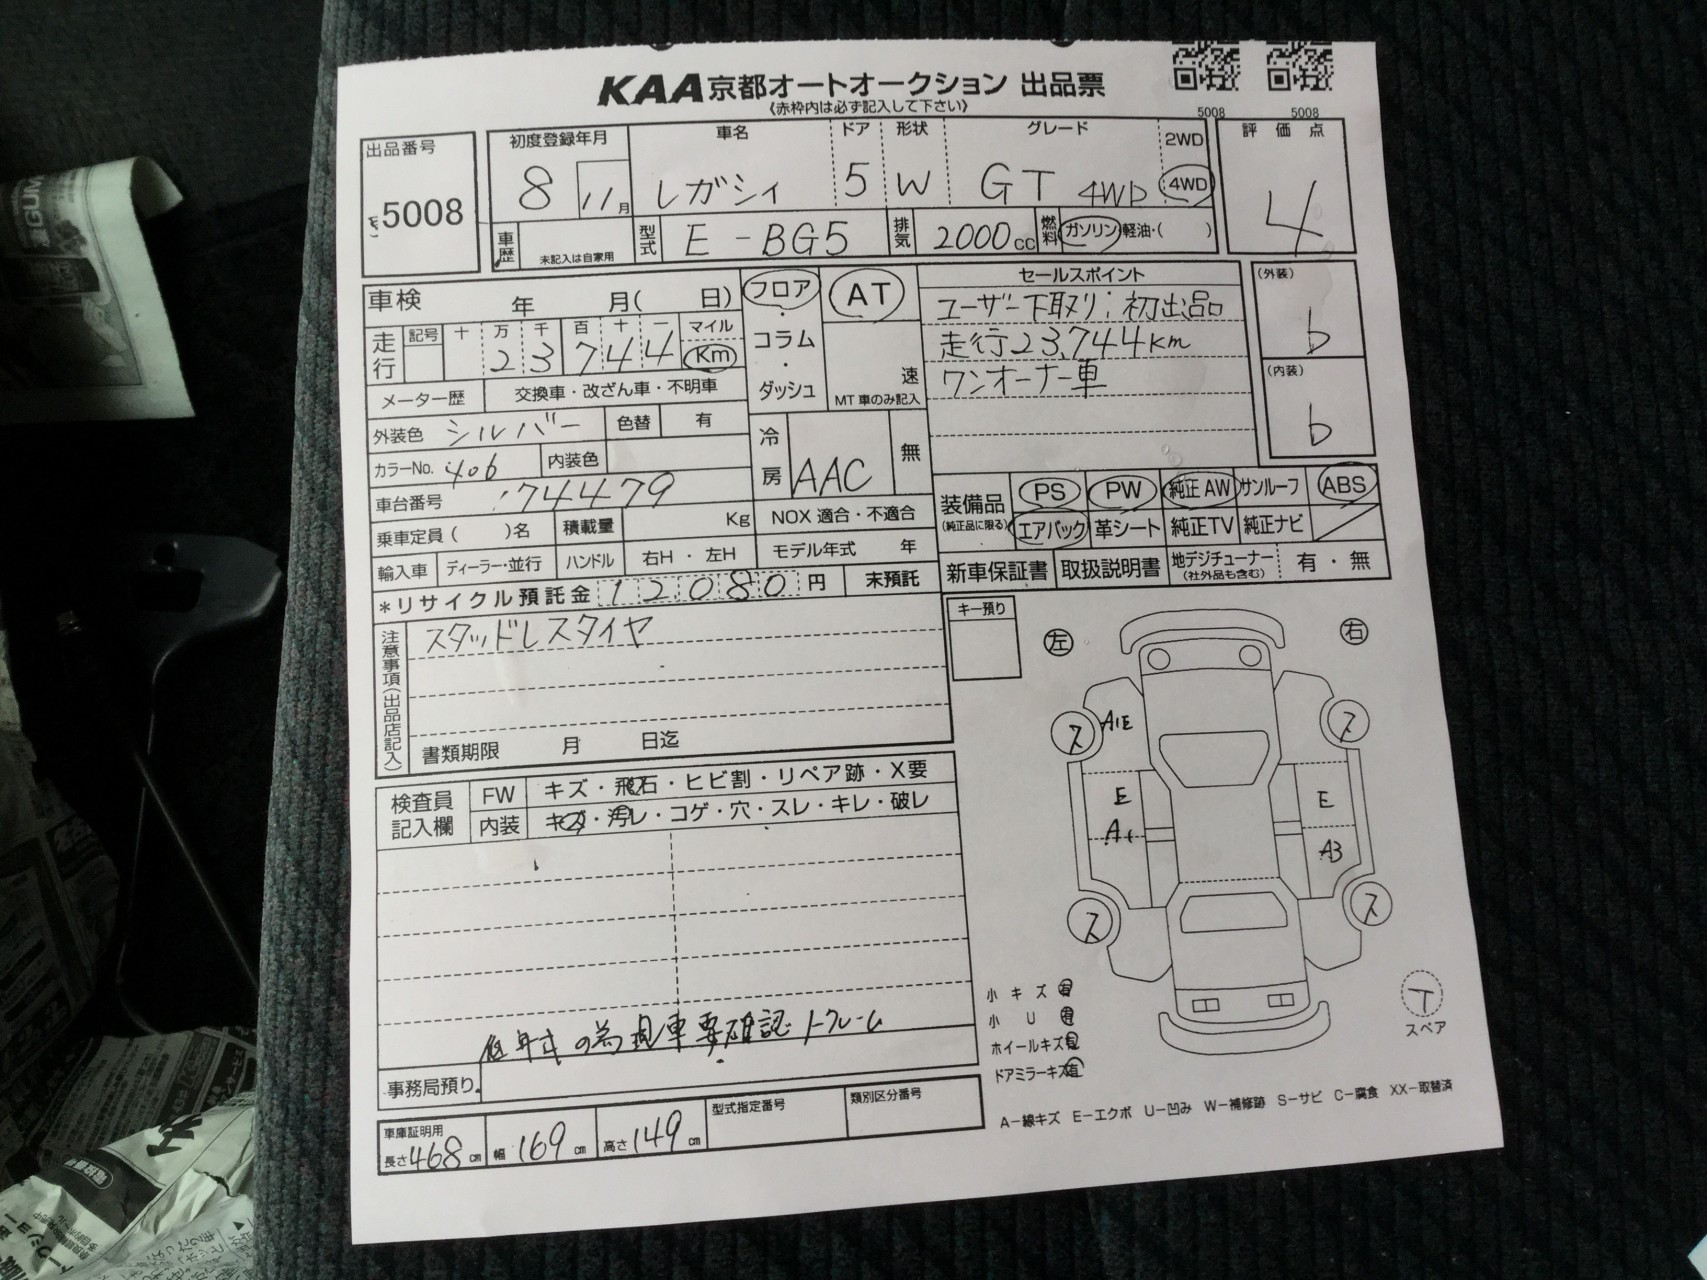 KAA京都オートオークション 出品票
《赤枠内は必ず記入して下さい》
5008 5008
出品番号
5008
初度登録年月 車名 ドア 形状 グレード 2WD
8 11月 レガシィ 5 W GT 4WD 4WD
評価点
4
車歴 未記入は自家用 型式 E-BG5 排気 2000cc 燃料 ガソリン・軽油・( )
車検 年 月( 日)
走行 記号 十 万 千 百 十 一 マイル
2 3 7 4 4 Km
メーター歴 交換車・改ざん車・不明車
外装色 シルバー 色替 有
カラーNo. 406 内装色
車台番号 :74479
乗車定員( )名 積載量 Kg NOX 適合・不適合
輸入車 ディーラー・並行 ハンドル 右H・左H モデル年式 年
*リサイクル預託金 12080円 末預託
フロア・コラム・ダッシュ
AT
速
MT車のみ記入
冷房 AAC 無
セールスポイント
ユーザー下取り;初出品
走行23,744km
ワンオーナー車
(外装)
b
(内装)
b
装備品 (純正品に限る) PS PW 純正AW サンルーフ ABS
エアバック 革シート 純正TV 純正ナビ
新車保証書 取扱説明書 地デジチューナー (社外品も含む) 有・無
注意事項(出品店記入)
スタッドレスタイヤ
書類期限 月 日迄
キー預り
左 右
A1E
ス ス
E E
A1 A3
ス ス
検査員記入欄 FW キズ・飛石・ヒビ割・リペア跡・X要
内装 キズ・汚レ・コゲ・穴・スレ・キレ・破レ
低年式の為現車要確認
事務局預り
小キズ 有
小U 有
ホイールキズ 有
ドアミラーキズ 有
T
スペア
A-線キズ E-エクボ U-凹み W-補修跡 S-サビ C-腐食 XX-取替済
車庫証明用
長さ468cm 幅169cm 高さ149cm 型式指定番号 類別区分番号